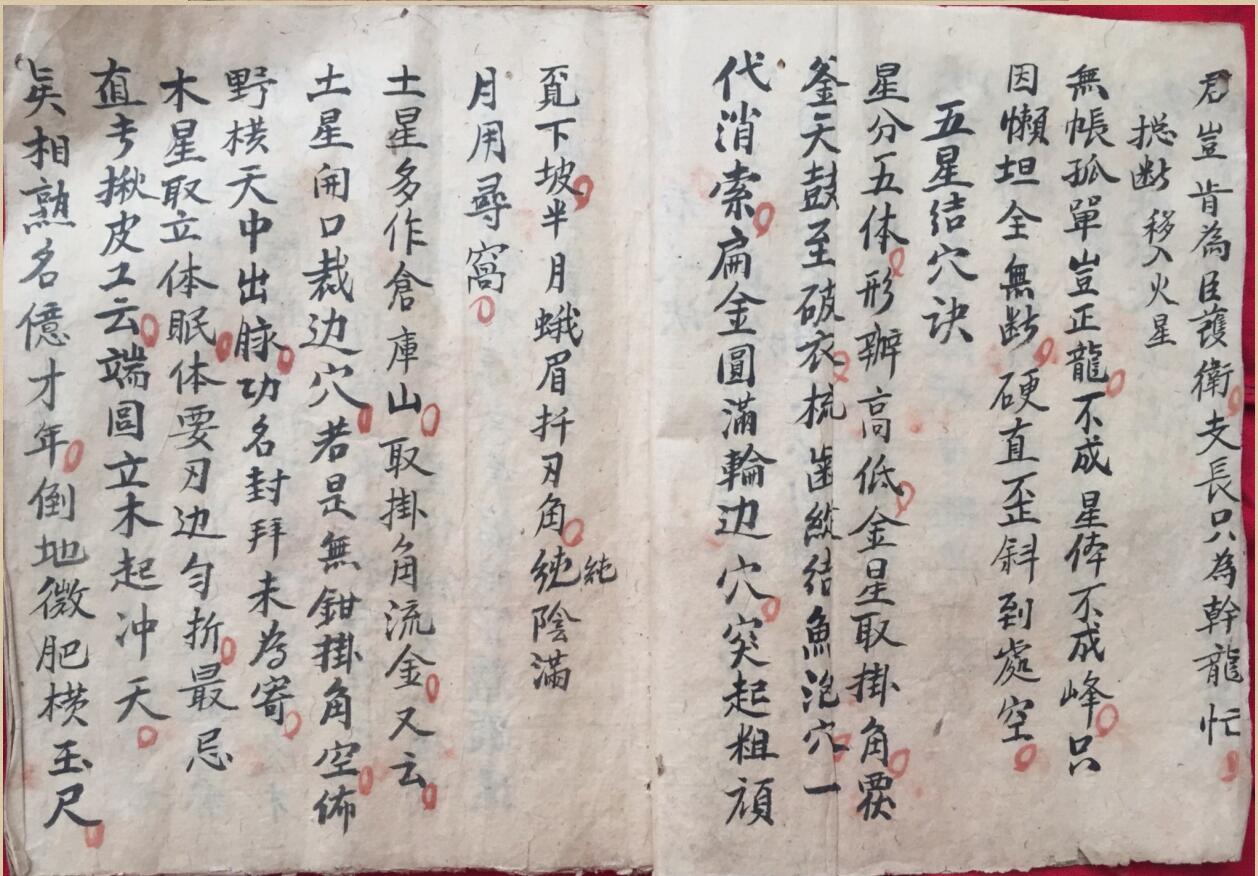 君豈肯為臣護衛支長只為幹龍忙
捴断 移入火星
無帳孤單豈正龍不成星俸不成峰只
因懶坦全無断硬直歪斜到處空
五星结穴诀
星分五体形辦高低金星取掛角覆
釜天鼓至破衣梳齒緃结魚泡穴一
代消索扁金圓滿輪边穴突起粗頑
覓下坡半月蛾眉扦刃角純陰滿
純
月用尋窩
土星多作倉庫山取掛角流金又云
土星開口裁边穴若是無鉗掛角空佈
野橫天中出脉功名封拜未為寄
木星取立体眠体要刃边勻折最忌
直 揪皮工云端圓立木起冲天
相熟名億才年倒地微肥橫玉尺